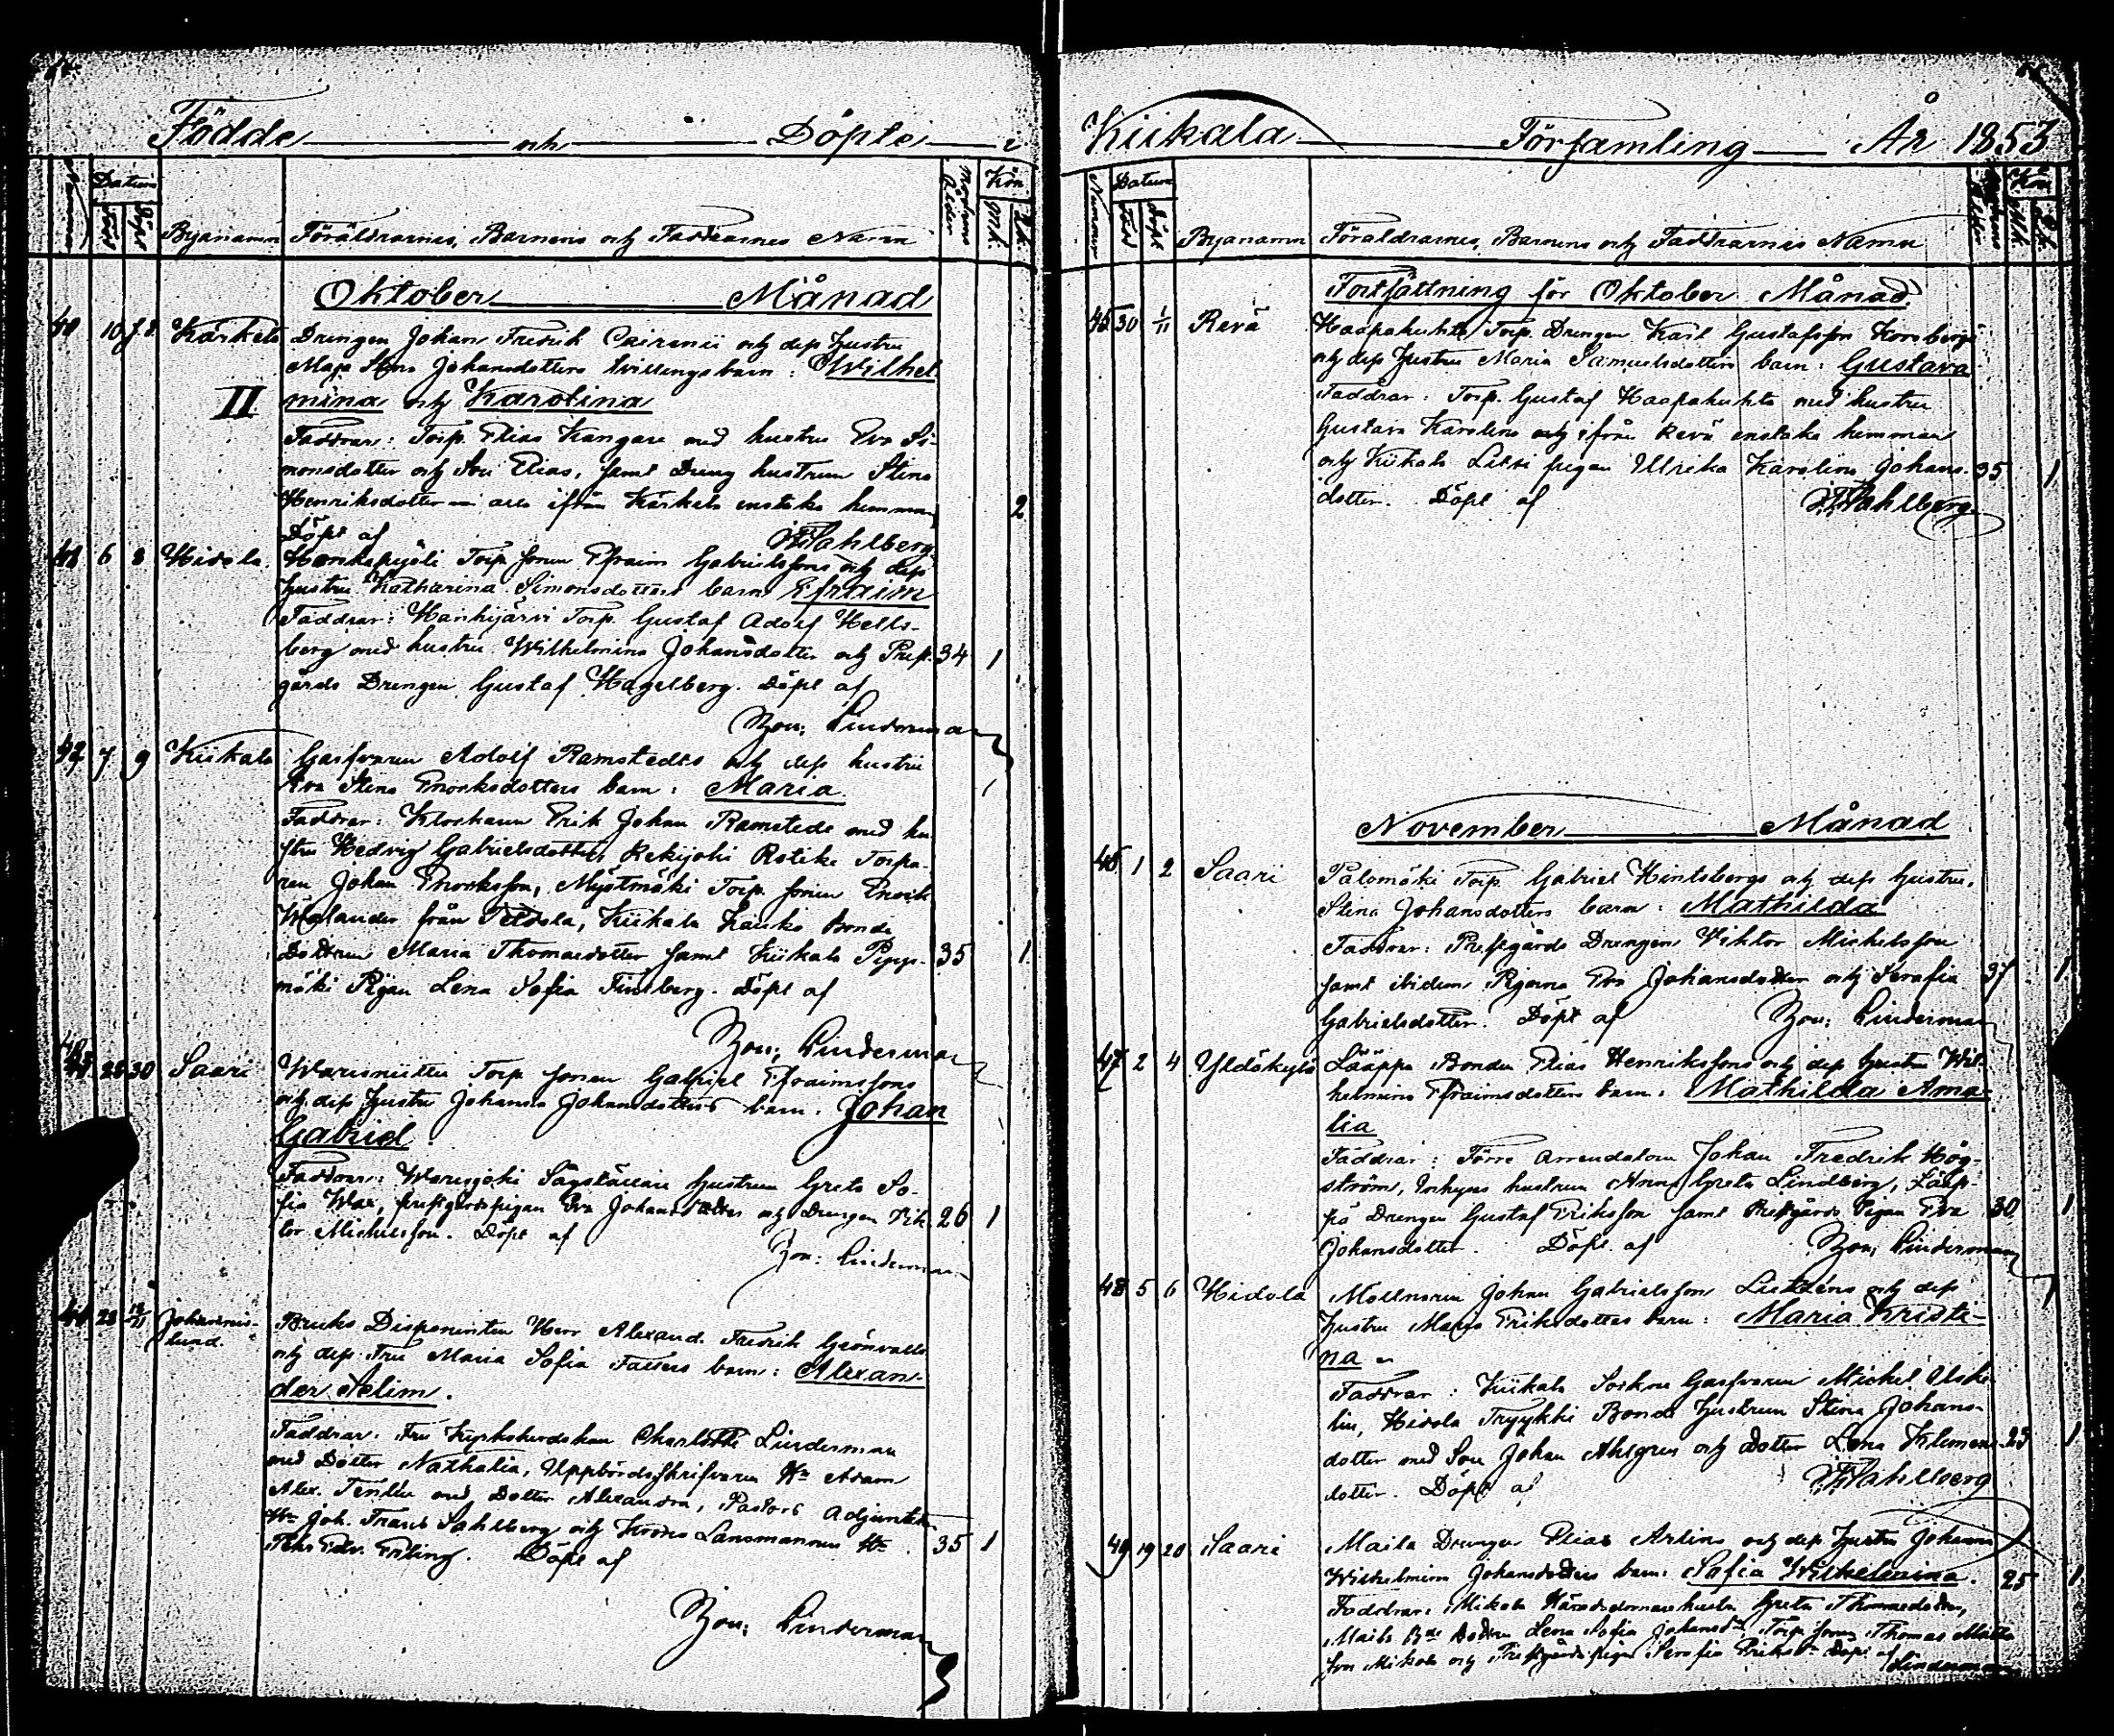 Födde och Döpte i
Datum
Född Döpt
Byanamn Föräldrarnes, Barnens och Faddrarnes Namn
Moderns Ålder
Kön
Mk. Qk.
Oktober Månad
40 10 Kärkelä Drengen Johan Fredrik Cairenii och dess hustru
Maja Stina Johansdotters tvillingebarn: Wilhel
II mina och Karolina
Faddrar: Torp. Elias Kangare med hustru Eva Si-
monsdotter och Son Elias, samt Dreng hustrun Stina
Henriksdotter — alla ifrån Kärkelä enstaka hemman 2
Döpt af Sahlberg
41 6 8 Hidola Torp sonen Efraim Gabrielssons och dess
hustru Katharina Simonsdotters barn Efraim
Faddrar: Hanhijärvi Torp. Gustaf Adolf Hells-
berg med hustru Wilhelmina Johansdotter och Prest- 34 1
gårds Drengen Gustaf Hagelberg. Döpt af
Linderman
42 7 9 Kiikala Gasfvaren Adolf Ramstedts och dess hustru
Eva Stina Enoksdotters barn: Maria
Faddrar: Klockaren Erik Johan Ramstedt med hu
stru Hedvig Gabrielsdotter, Rekijoki Torpa-
ren Johan Enoksson, Myötmäki Torp. sonen Enok
Walander från Peltola, Kiikala Kauko Bonde
Dottren Maria Thomasdotter samt Kiikala Pypp- 35 1
mäki Pigan Lena Sofia Finsberg. Döpt af
Linderman
43 28 30 Saari Torp sonen Gabriel Efraimssons
och dess hustru Johanna Johansdotters barn. Johan
Gabriel
Faddrar: Warisjoki Hustrun Greta So-
fia Wax, prestgårdspigan Eva Johansdotter och Drengen Vik- 26 1
tor Michelsson. Döpt af
Linderman
44 28 12/11 Johannis-
lund. Bruks Disponenten Herr Alexand. Fredrik Grönvalls
och dess Fru Maria Sofia barn: Alexan-
der Selim.
Faddrar: Fru Kyrkoherdskan Charlotte Linderman
med Dotter Nathalia, Uppbördsskrifvaren Hr Adam
Alex. med Dotter Alexandra, Pastors Adjunkten
Hr Joh. Sahlberg och Krono Länsmannen Hr 35 1
Döpt af
Linderman
Kiikala Församling År 1853
Nummer
Datum
Född Döpt
Byanamn Föräldrarnes, Barnens och Faddrarnes Namn
Kön
Fortsättning för Oktober Månad
45 30 1/11 Revä Haapakuhta Torp. Drengen Karl Gustafsson Korsbergs
och dess hustru Maria Samuelsdotters barn: Gustava
Faddrar: Torp. Gustaf Haapakuhta med hustru
Gustava Karolina och ifrån Revä enstaka hemman
och Kiikala pigan Ulrika Karolina Johans- 35 1
dotter. Döpt af Sahlberg
November Månad
46 1 2 Saari Palomäki Torp. Gabriel Hintsbergs och dess hustru
Stina Johansdotters barn: Mathilda
Faddrar: Prestgårds Drengen Viktor Michelsson
samt ibidem Pigorna Eva Johansdotter och Serafia 37 1
Gabrielsdotter. Döpt af Linderman
47 2 4 Yldökylä Lääppä Bonden Elias Henrikssons och dess hustru Wil-
helmina Efraimsdotters barn: Mathilda Ama-
lia
Faddrar: Förre Arrendatorn Johan Fredrik Hög-
ström, Inhyses hustrun Anna Greta Lindberg, Lääp-
pä Drengen Gustaf Eriksson samt Prestgårds Pigan Eva 30 1
Johansdotter. Döpt af Linderman
48 5 6 Hidola Möllnaren Johan Gabrielsson och dess
hustru Maria Eriksdotters barn: Maria Kristi-
na
Faddrar: Kiikala Socken Gasfvaren Michel
lin, Hidola Tryykki Bonde hustrun Stina Johans-
dotter med Son Johan Ahlgren och dotter Lena Klemens- 23 1
dotter. Döpt af Sahlberg
49 19 20 Saari Maila Drengen Elias Arlins och dess hustru Johanna
Wilhelmina Johansdotters barn: Sofia Wilhelmina. 25 1
Faddrar: Mikola hustru Greta Thomasdotter,
Maila Dottren Lena Sofia Johansdr, Torp. sonen Thomas
son Mikola och Prestgårds pigan Serafia Döpt af
Linderman